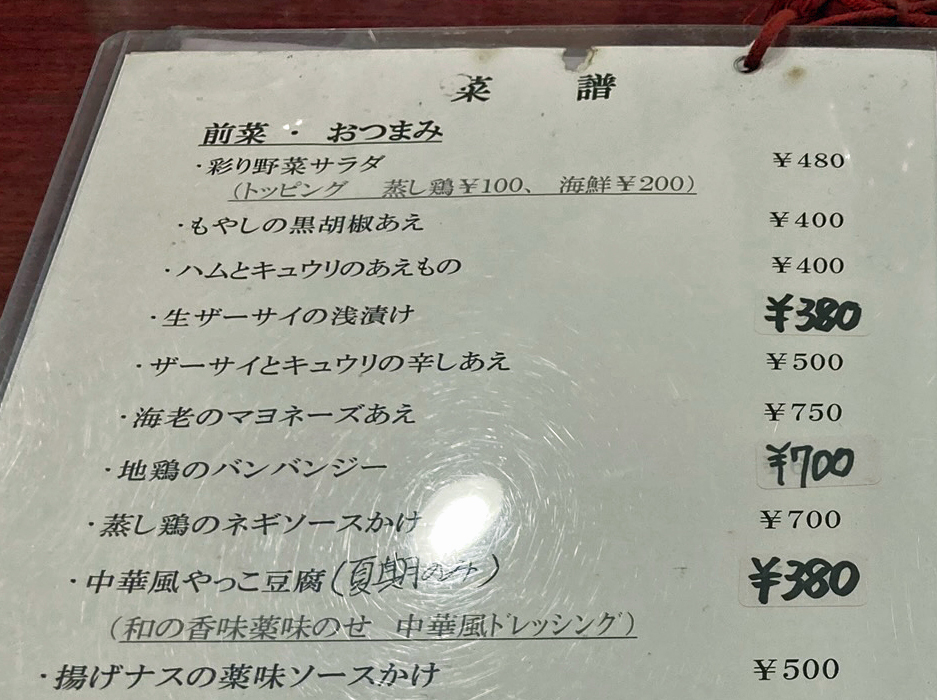 菜 譜
前菜 ・ おつまみ
・彩り野菜サラダ ￥480
(トッピング 蒸し鶏￥100、 海鮮￥200)
・もやしの黒胡椒あえ ￥400
・ハムとキュウリのあえもの ￥400
・生ザーサイの浅漬け ￥380
・ザーサイとキュウリの辛しあえ ￥500
・海老のマヨネーズあえ ￥750
・地鶏のバンバンジー ￥700
・蒸し鶏のネギソースかけ ￥700
・中華風やっこ豆腐(夏期のみ) ￥380
(和の香味薬味のせ 中華風ﾄﾞレッシング)
・揚げナスの薬味ソースかけ ￥500